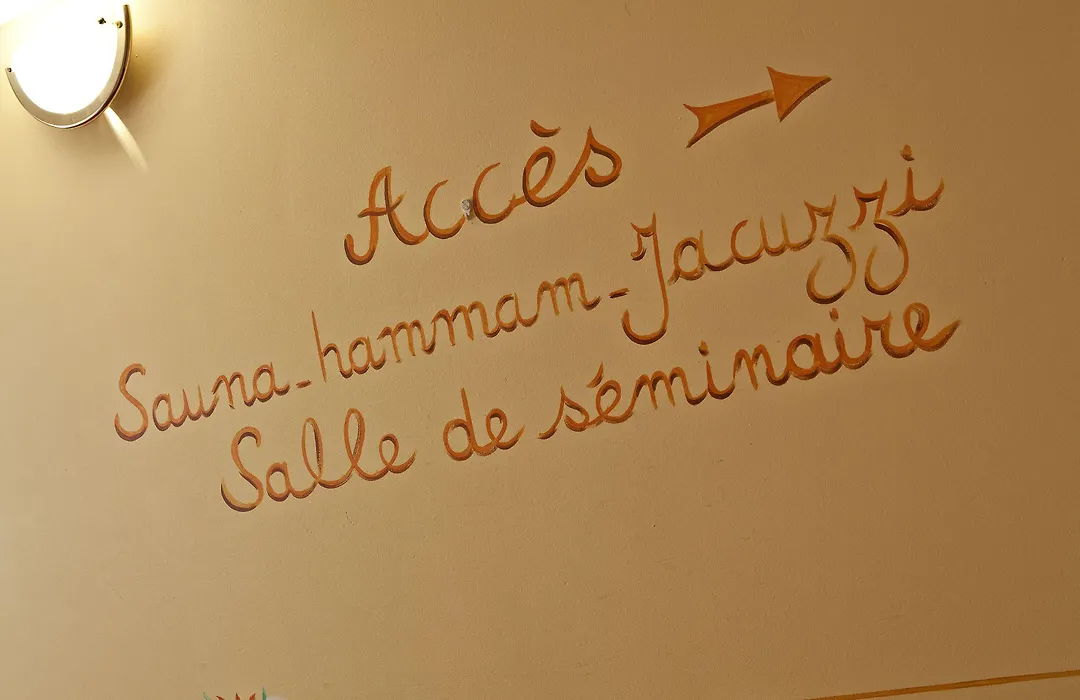 Accès
Sauna-hammam-Jacuzzi
Salle de séminaire